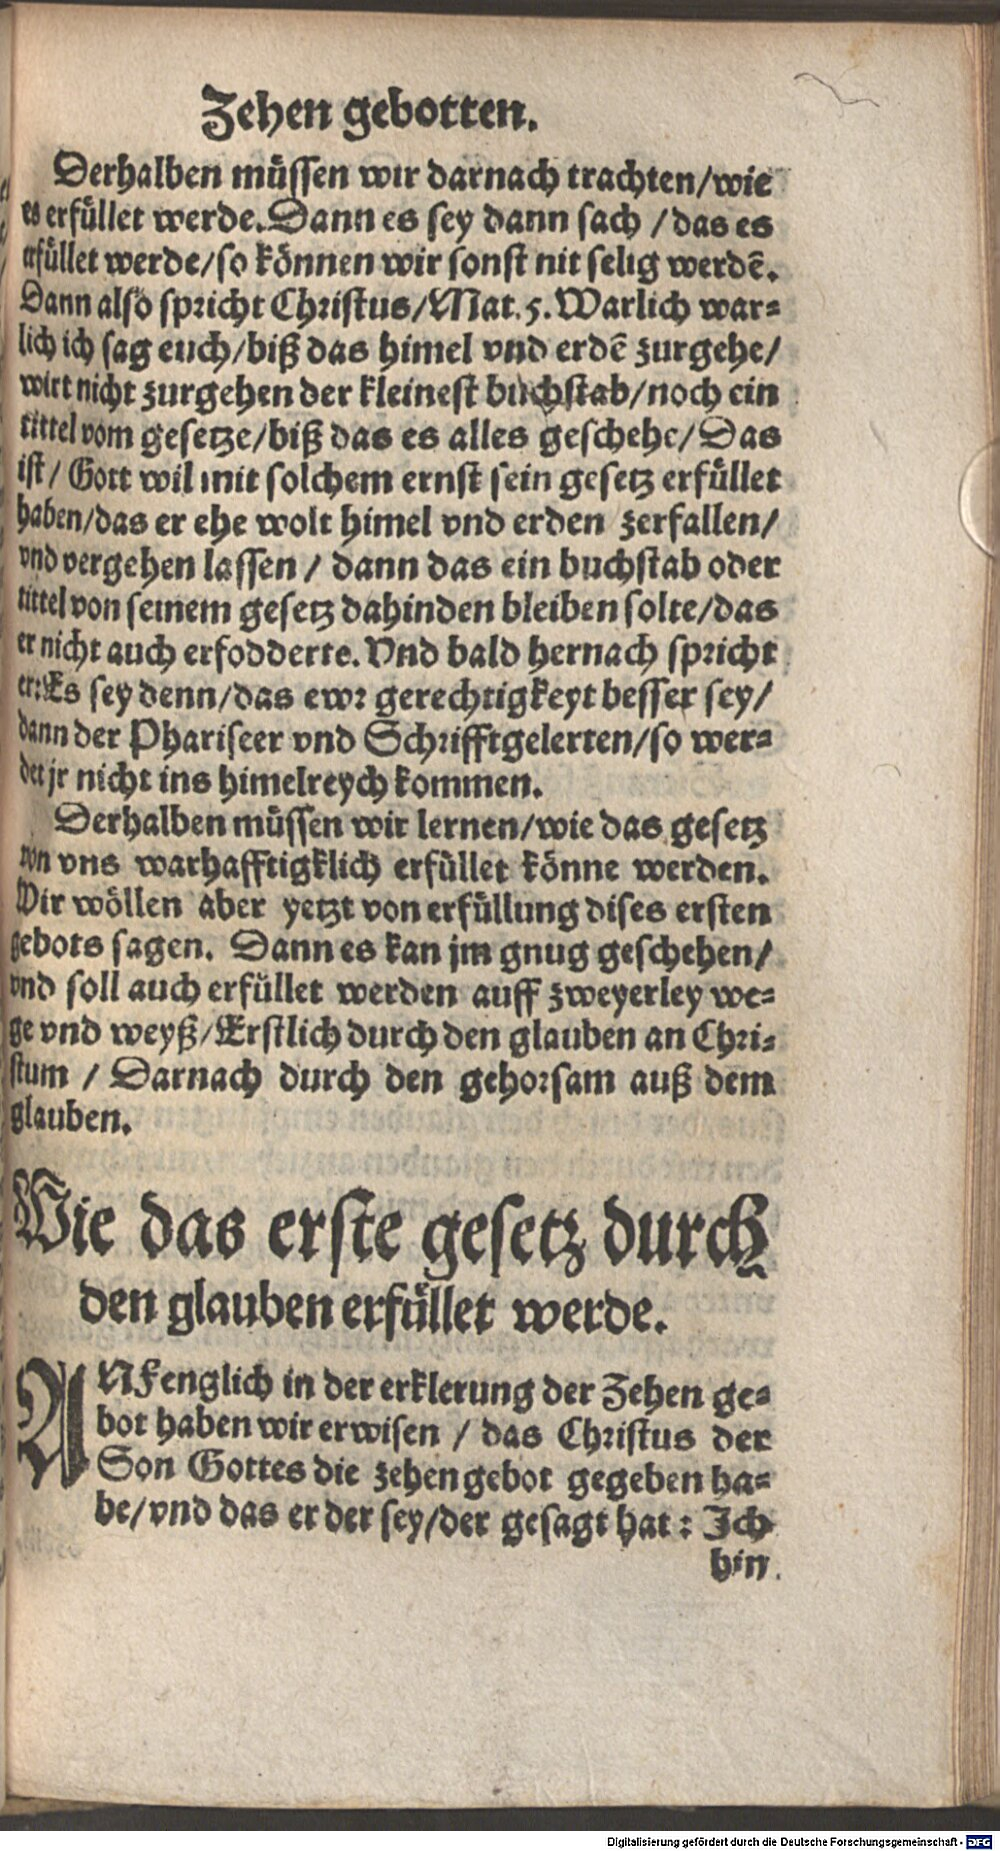 Zehen gebotten.
Derhalben müssen wir darnach trachten/wie
es erfüllet werde. Dann es sey dann sach / das es
erfüllet werde/so können wir sonst nit selig werdē.
Dann also spricht Christus/Mat. 5. Warlich war⸗
lich ich sag euch/biß das himel vnd erdē zurgehe/
wirt nicht zurgehen der kleinest buchstab/noch ein
tittel vom gesetze/biß das es alles geschehe/Das
ist/ Gott wil mit solchem ernst sein gesetz erfüllet
haben/das er ehe wolt himel vnd erden zerfallen/
vnd vergehen lassen / dann das ein buchstab oder
tittel von seinem gesetz dahinden bleiben solte/das
er nicht auch erfodderte. Vnd bald hernach spricht
er:Es sey denn/das ewr gerechtigkeyt besser sey/
dann der Phariseer vnd Schrifftgelerten/so wer⸗
det jr nicht ins himelreych kommen.
Derhalben müssen wir lernen/wie das gesetz
von vns warhafftigklich erfüllet könne werden.
Wir wöllen aber yetzt von erfüllung dises ersten
gebots sagen. Dann es kan jm gnug geschehen/
vnd soll auch erfüllet werden auff zweyerley we⸗
ge vnd weyß/Erstlich durch den glauben an Chri⸗
stum / Darnach durch den gehorsam auß dem
glauben.
Wie das erste gesetz durch
den glauben erfüllet werde.
ANfenglich in der erklerung der Zehen ge⸗
bot haben wir erwisen / das Christus der
Son Gottes die zehen gebot gegeben ha⸗
be/vnd das er der sey/der gesagt hat: Ich
bin
Digitalisierung gefördert durch die Deutsche Forschungsgemeinschaft - DFG